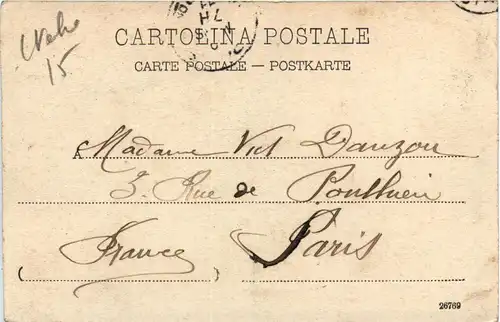 CARTOLINA POSTALE
CARTE POSTALE — POSTKARTE
15
A Madame Vict Dauzon
3. Rue de Ponthieu
Paris
France
26769